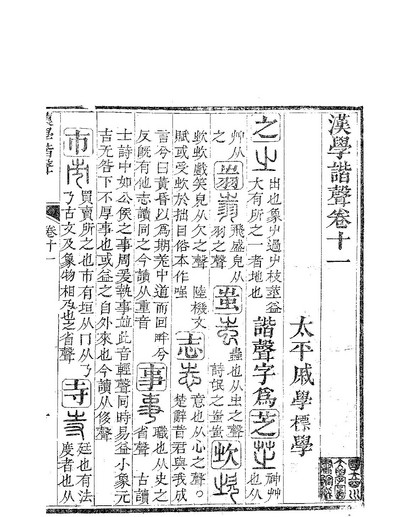 漢學諧聲卷十一
太平戚學標學
之 出也象屮過屮枝莖益
大有所之一者地也
諧聲字爲芝 神艸
也从
艸从
之
飛盛皃从
羽之聲
蚩 蟲也从虫之聲
詩氓之蚩蚩
㰞
㰞㰞戲笑皃从欠之聲 陸機文
賦或受㰞於拙目俗本作嗤
志 意也从心之聲。
楚辭昔君與我成
言兮曰黃昏以爲期羌中道而回畔兮
反旣有他志讀同之今讀从重音
事 職也从史之
省聲 古讀
士詩中如公侯之事周爰執事竝此音輕聲同時易益小象元
吉无咎下不厚事也或益之自外來也今讀从
聲
市 買賣所之也市有垣从冂从乁
乁古文及象物相及也之省聲
寺 廷也有法
度者也从
漢學諧聲
卷十一